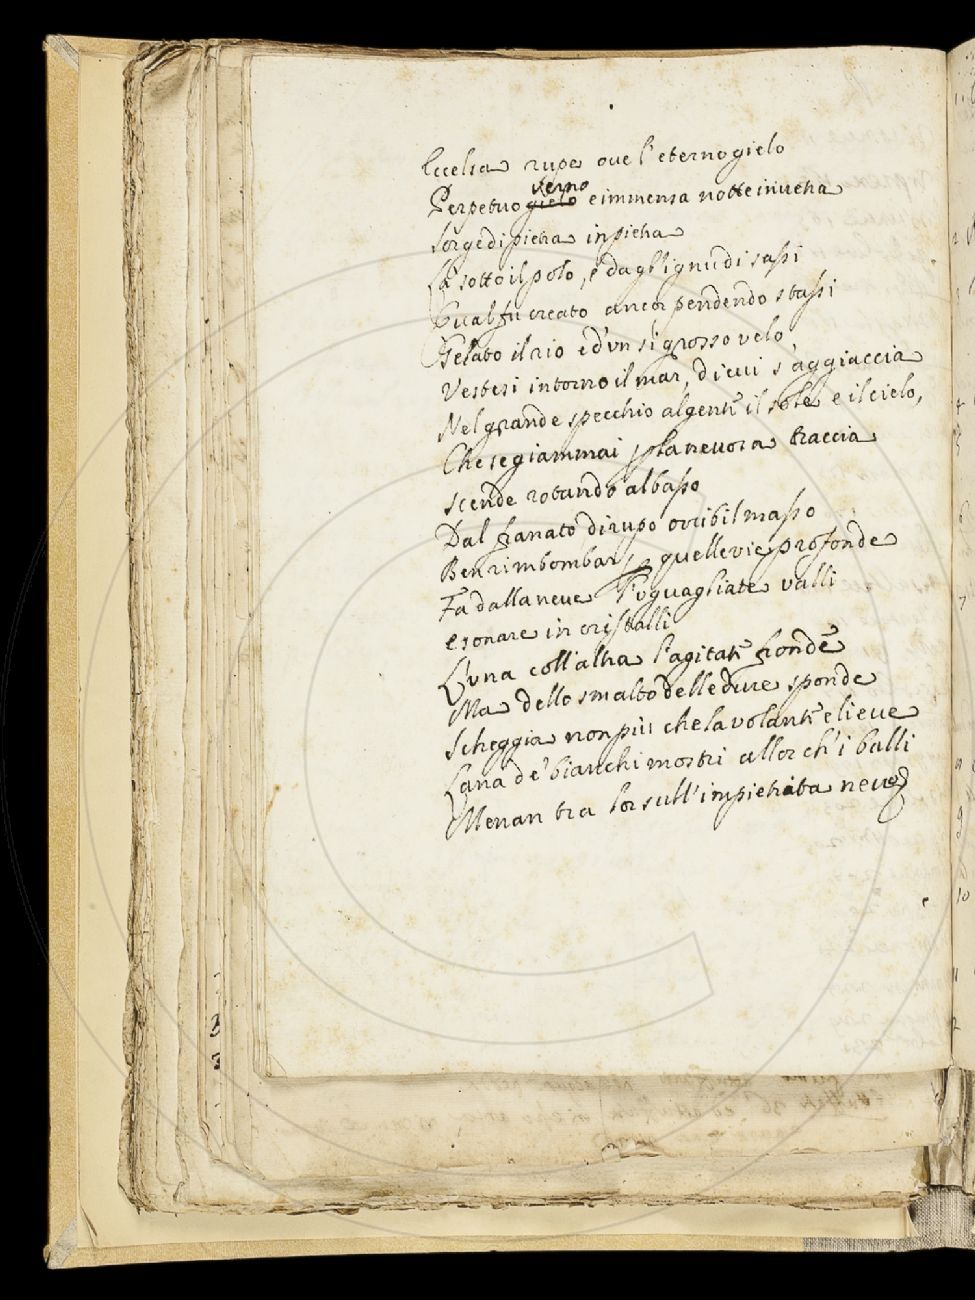 Eccelsa rupe oue l'eterno gielo
verno
Perpetuo gielo e immensa notte inuetra
Sorge di pietra inpietra
Là sotto il polo, e dagl'ignudi sassi
Qual fu creato ancor pendendo stassi
Gelato il rio ed'vn sì grosso velo
Vestesi intorno il mar, di cui s'aggiaccia
Nel grande specchio algente il sole e il cielo,
Che se giammai p la neuosa traccia
scende rotando al basso
Dal franato dirupo orribil masso
Ben rimbombar p quelle vie profonde
Fa dalla neue l'vguagliate valli
e sonare in cristalli
L'vna coll'altra l'agitate fronde
Ma dello smalto delle dure sponde
Scheggia non più che la volante e lieue
Lana de' bianchi mostri allor ch'i balli
Menan tra lor sull'impietrita neue